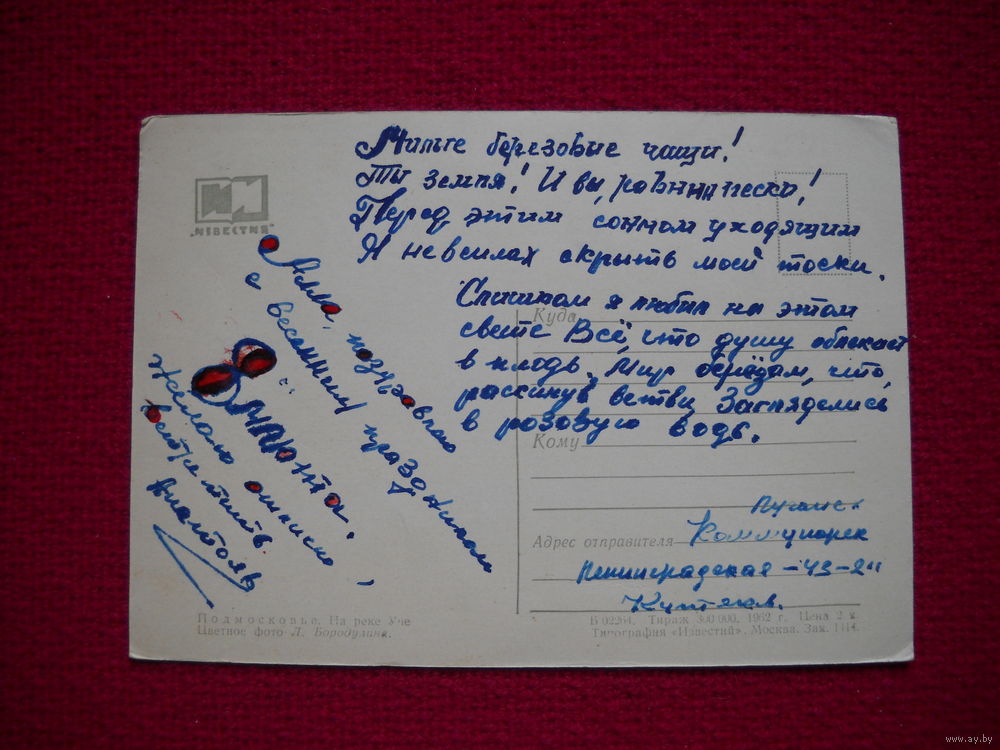 Милые березовые чащи!
Ты земля! И вы, равнин пески!
Перед этим сонмом уходящим
Я не в силах скрыть моей тоски.
Слишком я любил на этом
свете Всё, что душу облекает
в плодь. Мир берёзам, что,
раскинув ветви, Загляделись
в розовую водь.
"ИЗВЕСТИЯ"
Алла, поздравляю
с весенним праздником
8 МАРТА.
Желаю отлично
встретить.
Куда
Кому
Адрес отправителя
Коммунорск
Ленинградская-43-2"
Подмосковье. На реке Уче
Цветное фото Л. Бородулина.
Б 02264. Тираж 300 000. 1962 г. Цена 2 к.
Типография «Известий». Москва. Зак. 1414.
www.ay.by